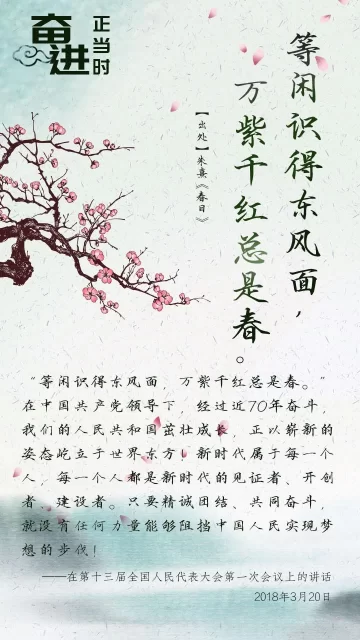 奋进
正当时
等闲识得东风面，
万紫千红总是春。
【出处】朱熹《春日》
“等闲识得东风面，万紫千红总是春。”
在中国共产党领导下，经过近70年奋斗，
我们的人民共和国茁壮成长，正以崭新的
姿态屹立于世界东方！新时代属于每一个
人，每一个人都是新时代的见证者、开创
者、建设者。只要精诚团结、共同奋斗，
就没有任何力量能够阻挡中国人民实现梦
想的步伐！
——在第十三届全国人民代表大会第一次会议上的讲话
2018年3月20日